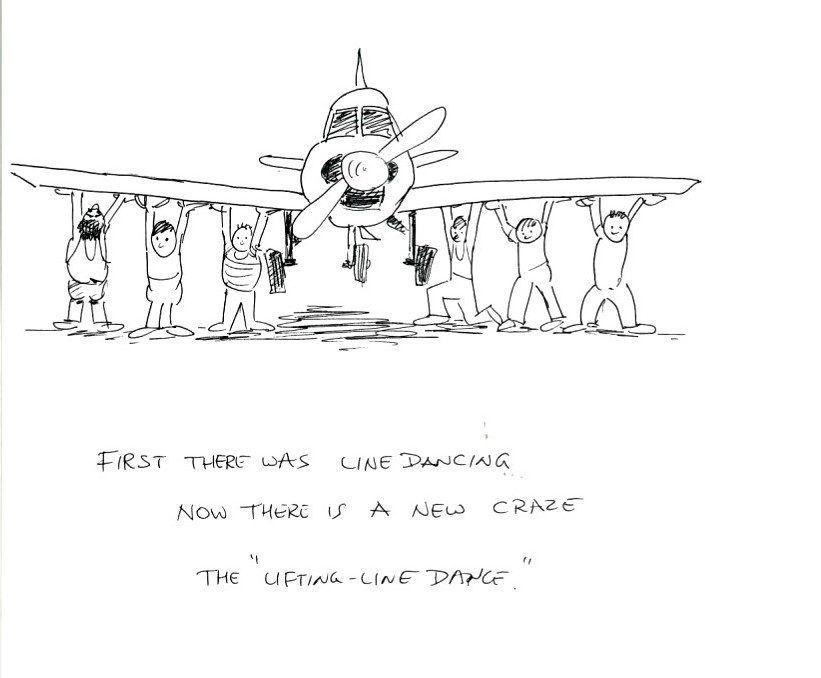 FIRST THERE WAS LINE DANCING
NOW THERE IS A NEW CRAZE
THE "LIFTING-LINE DANCE."